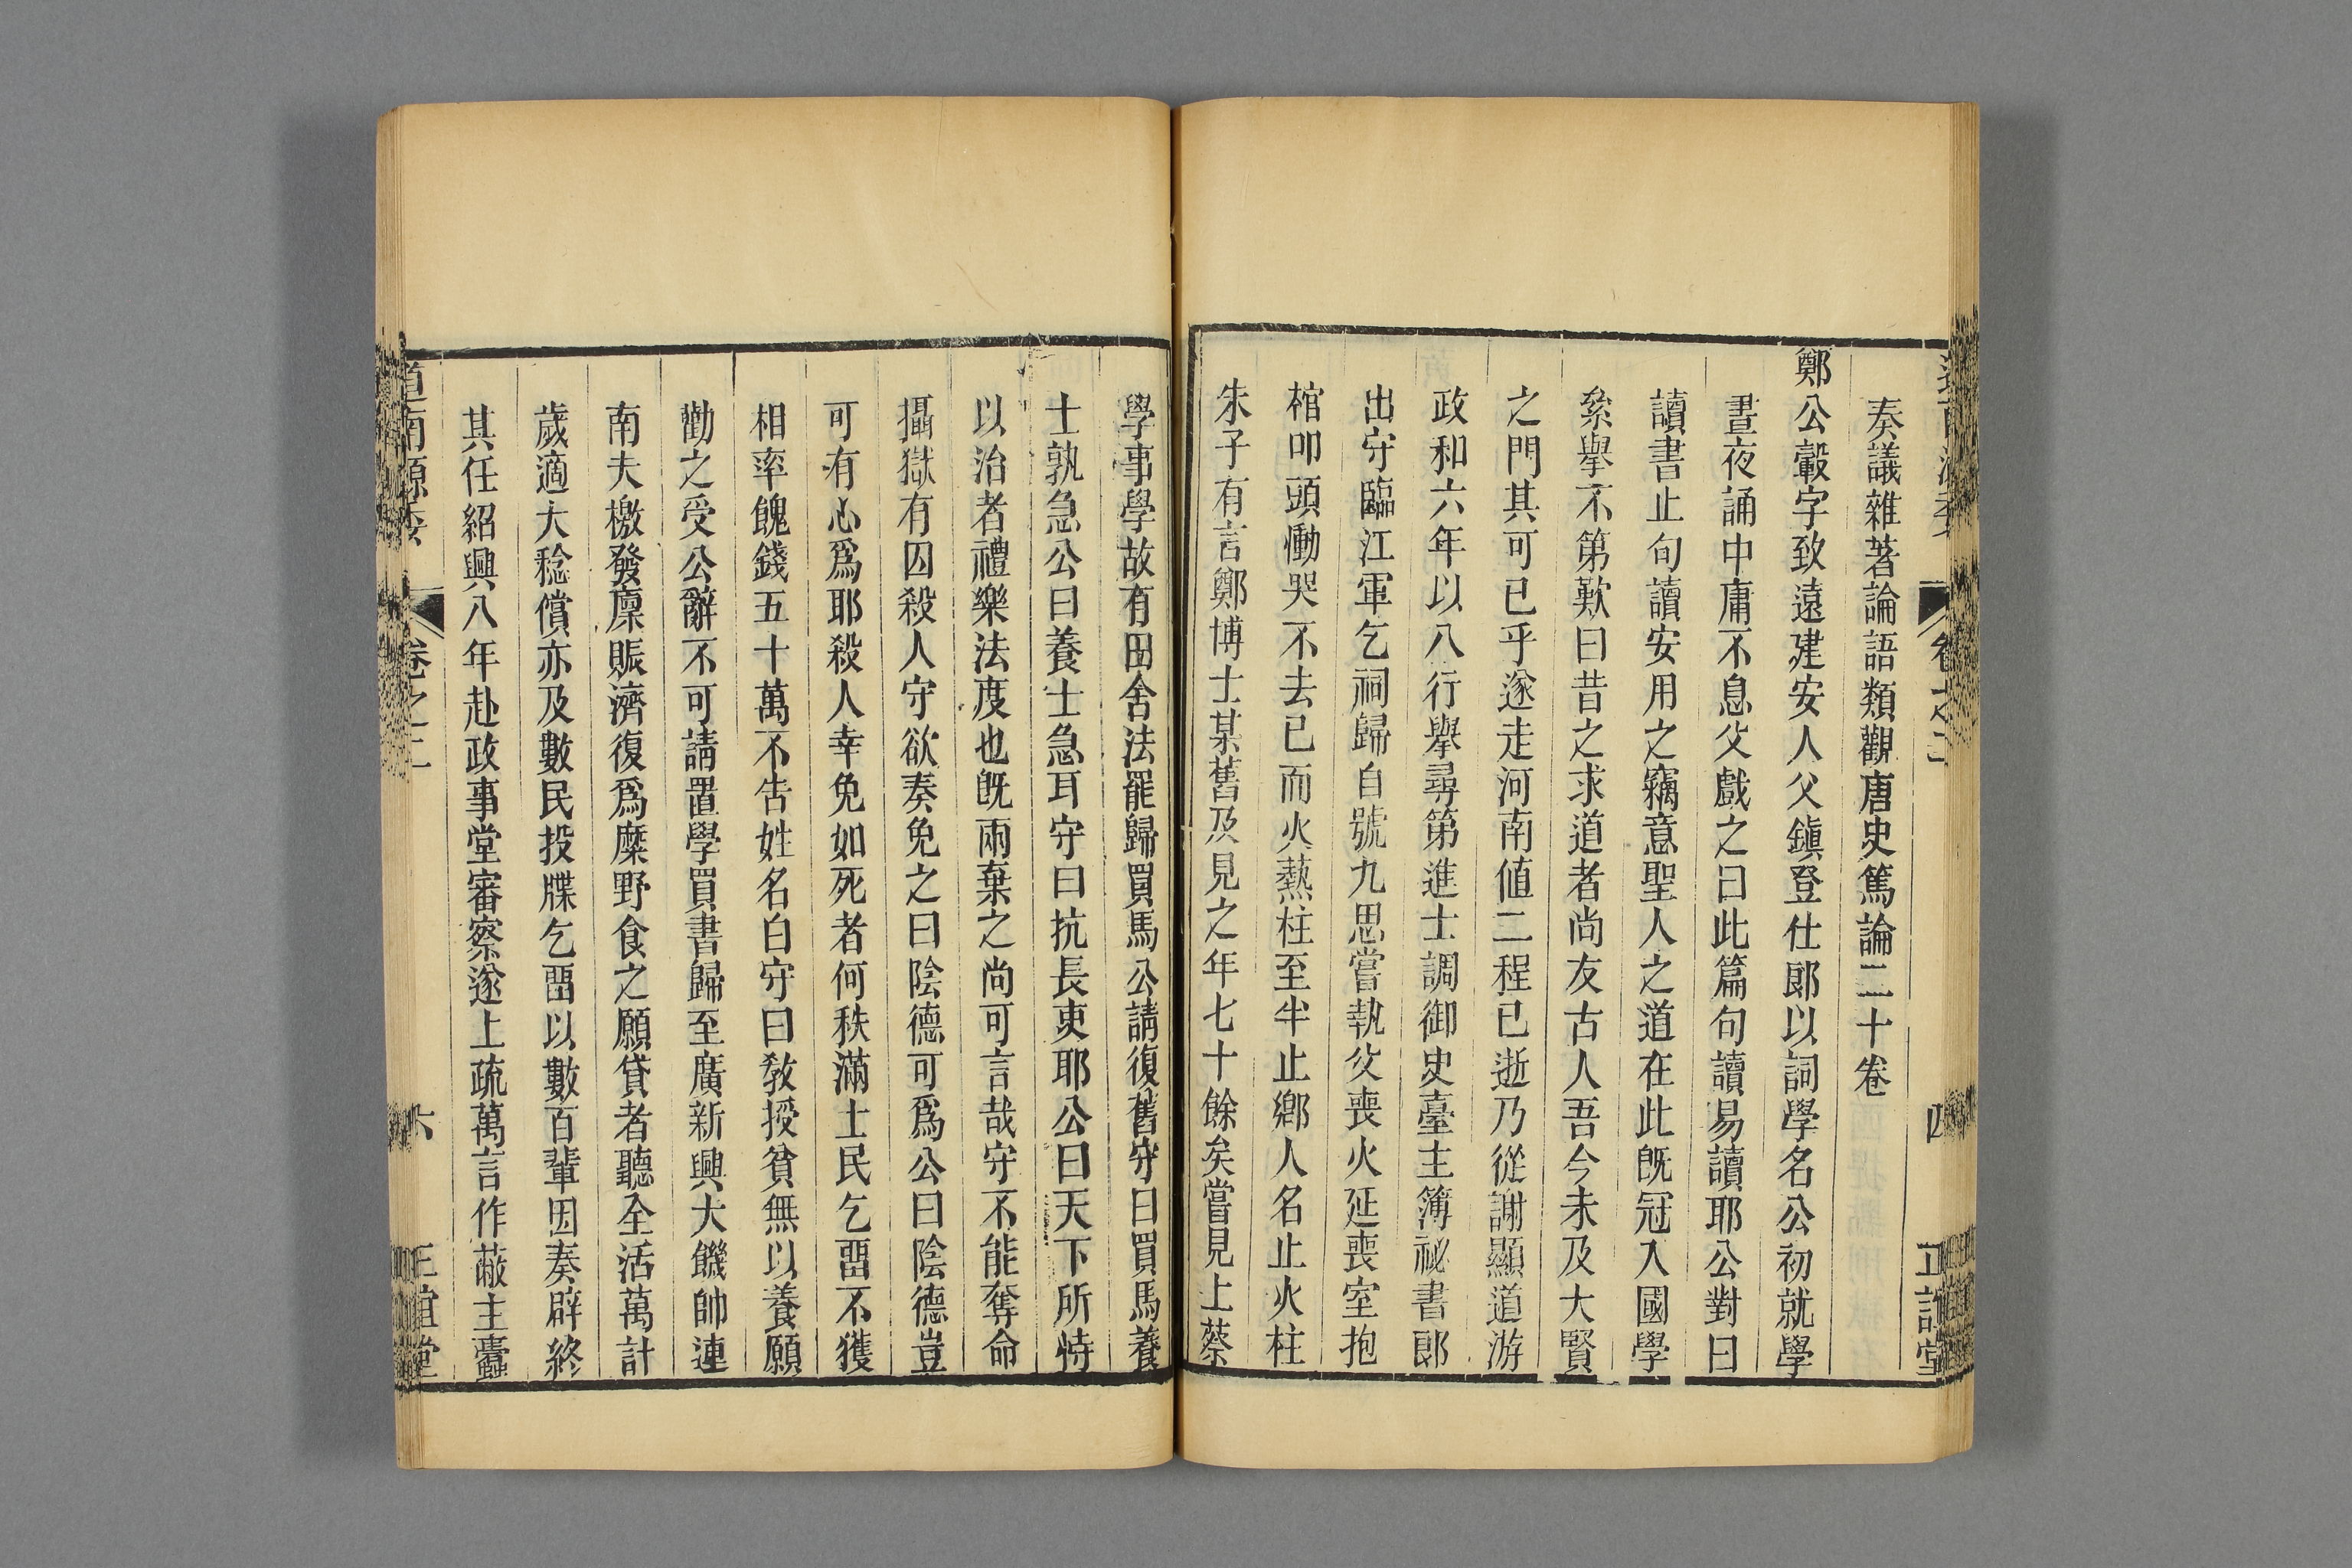 奏議雜著論語類觀唐史篤論二十卷
鄭公轂字致遠建安人父鎮登仕郎以詞學名公初就學
晝夜誦中庸不息父戲之曰此篇句讀易讀耶公對曰
讀書止句讀安用之竊意聖人之道在此既冠入國學
絫舉不第歎曰昔之求道者尚友古人吾今未及大賢
之門其可已乎遂走河南値二程已逝乃從謝顯道游
政和六年以八行舉尋第進士調御史臺主簿祕書郎
出守臨江軍乞祠歸自號九思嘗執父喪火延喪室抱
棺叩頭慟哭不去已而火爇柱至半止鄉人名止火柱
朱子有言鄭博士某舊及見之年七十餘矣嘗見上蔡
學事學故有田舍法罷歸買馬公請復舊守曰買馬養
士孰急公曰養士急耳守曰抗長吏耶公曰天下所恃
以治者禮樂法度也既兩棄之尚可言哉守不能奪命
攝獄有囚殺人守欲奏免之曰陰德可爲公曰陰德豈
可有心爲耶殺人幸免如死者何秩滿士民乞畱不獲
相率餽錢五十萬不告姓名白守曰敎授貧無以養願
勸之受公辭不可請置學買書歸至廣新興大饑帥連
南夫檄發廩賑濟復爲糜野食之願貸者聽全活萬計
歲適大稔償亦及數民投牒乞畱以數百輩因奏辟終
其任紹興八年赴政事堂審察遂上疏萬言作蔽主蠹
道南源委
卷之二
六
正誼堂